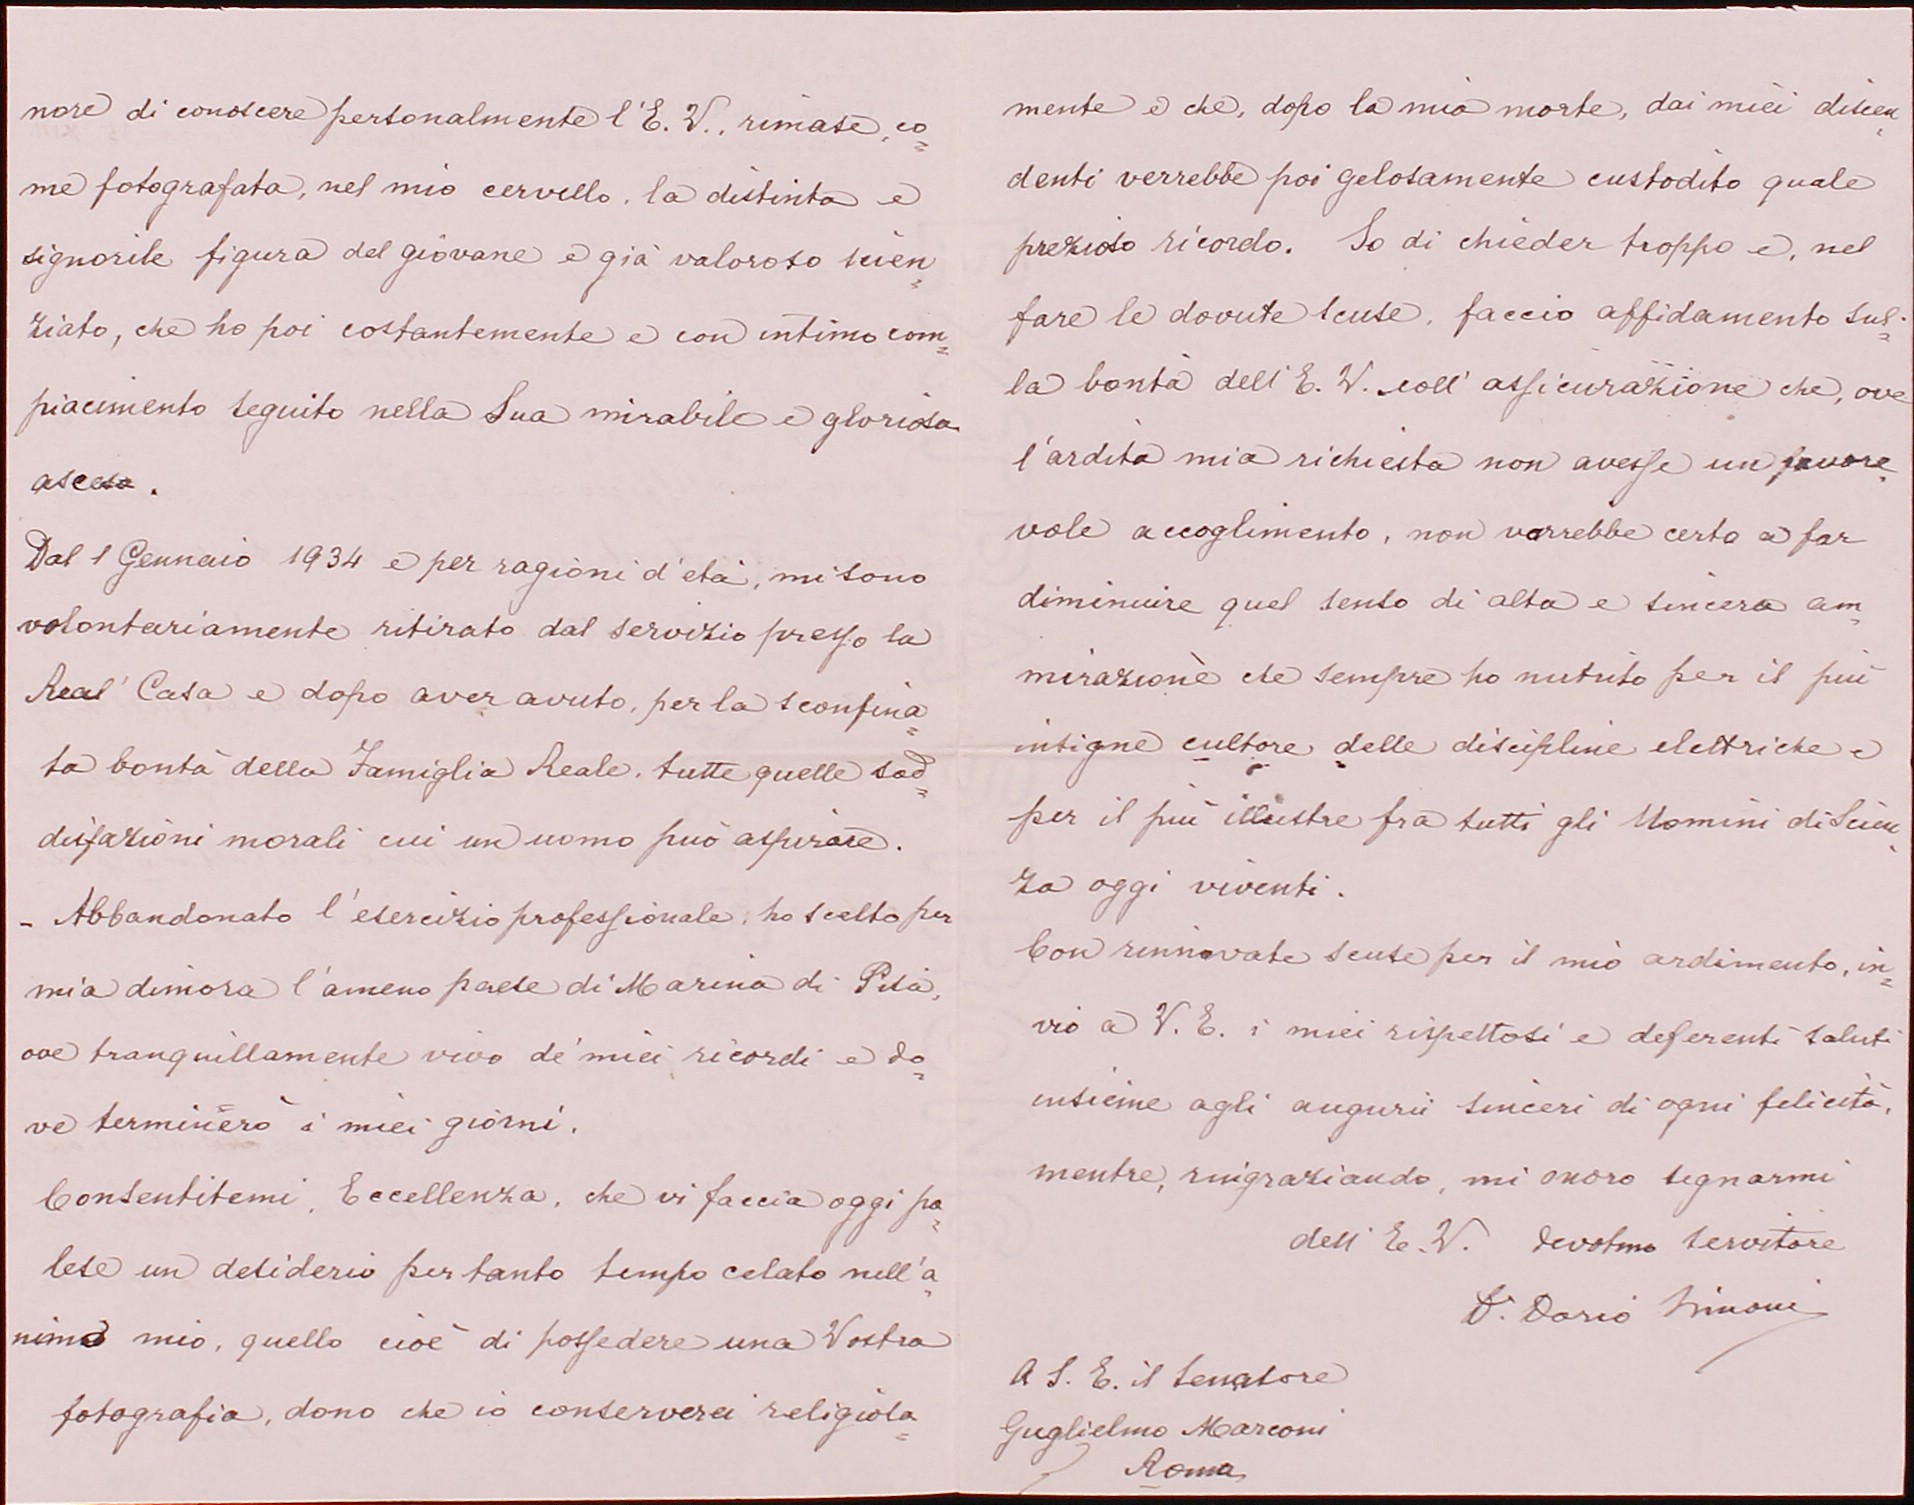 nore di conoscere personalmente l'E. V., rimase, co=
me fotografata, nel mio cervello, la distinta e
signorile figura del giovane e già valoroso scien=
ziato, che ho poi costantemente e con intimo com=
piacimento seguito nella Sua mirabile e gloriosa
ascesa.
Dal 1 Gennaio 1934 e per ragioni d'età, mi sono
volontariamente ritirato dal servizio presso la
Real Casa e dopo aver avuto, per la sconfina=
ta bontà della Famiglia Reale, tutte quelle sod=
disfazioni morali cui un uomo può aspirare.
- Abbandonato l'esercizio professionale, ho scelto per
mia dimora l'ameno paese di Marina di Pisa,
ove tranquillamente vivo de' miei ricordi e do=
ve terminerò i miei giorni.
Consentitemi, Eccellenza, che vi faccia oggi pa=
lese un desiderio per tanto tempo celato nell'a=
nimo mio, quello cioè di possedere una Vostra
fotografia, dono che io conserverei religiosa=
mente e che, dopo la mia morte, dai miei discen=
denti verrebbe poi gelosamente custodito quale
prezioso ricordo. So di chieder troppo e, nel
fare le dovute scuse, faccio affidamento sul=
la bontà dell'E. V. coll'assicurazione che, ove
l'ardita mia richiesta non avesse un favore=
vole accoglimento, non varrebbe certo a far
diminuire quel senso di alta e sincera am=
mirazione che sempre ho nutrito per il più
insigne cultore delle discipline elettriche e
per il più illustre fra tutti gli Uomini di Scien=
za oggi viventi.
Con rinnovate scuse per il mio ardimento, in=
vio a V. E. i miei rispettosi e deferenti saluti
insieme agli augurii sinceri di ogni felicità,
mentre, ringraziando, mi onoro segnarmi
dell'E. V. devotmo servitore
Dr. Dario Simoni
A S. E. il Senatore
Guglielmo Marconi
Roma